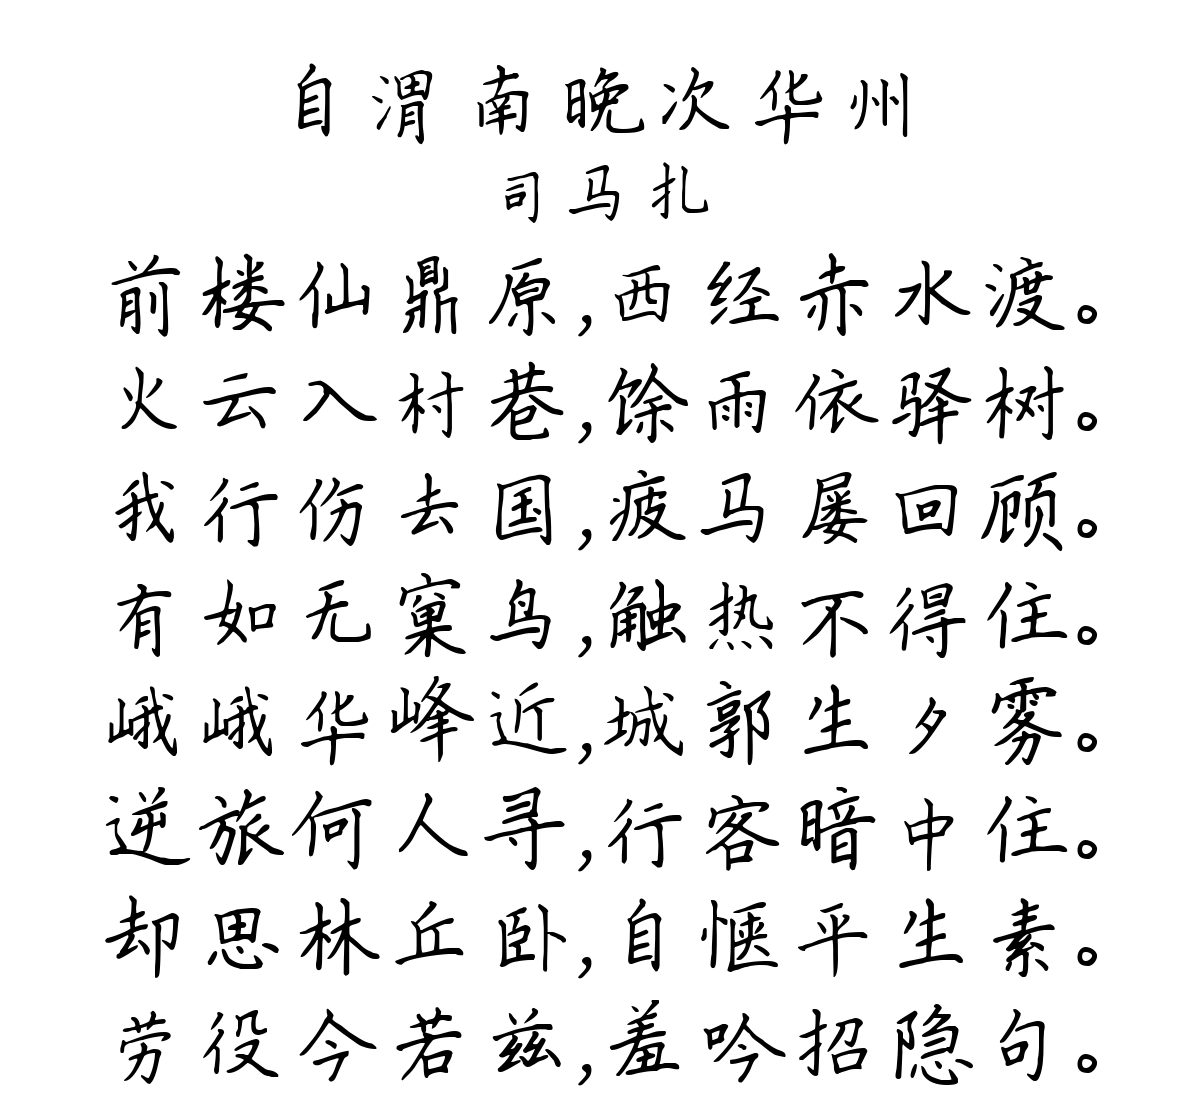 自渭南晚次华州
司马扎
前楼仙鼎原,西经赤水渡。
火云入村巷,馀雨依驿树。
我行伤去国,疲马屡回顾。
有如无窠鸟,触热不得住。
峨峨华峰近,城郭生夕雾。
逆旅何人寻,行客暗中住。
却思林丘卧,自惬平生素。
劳役今若兹,羞吟招隐句。